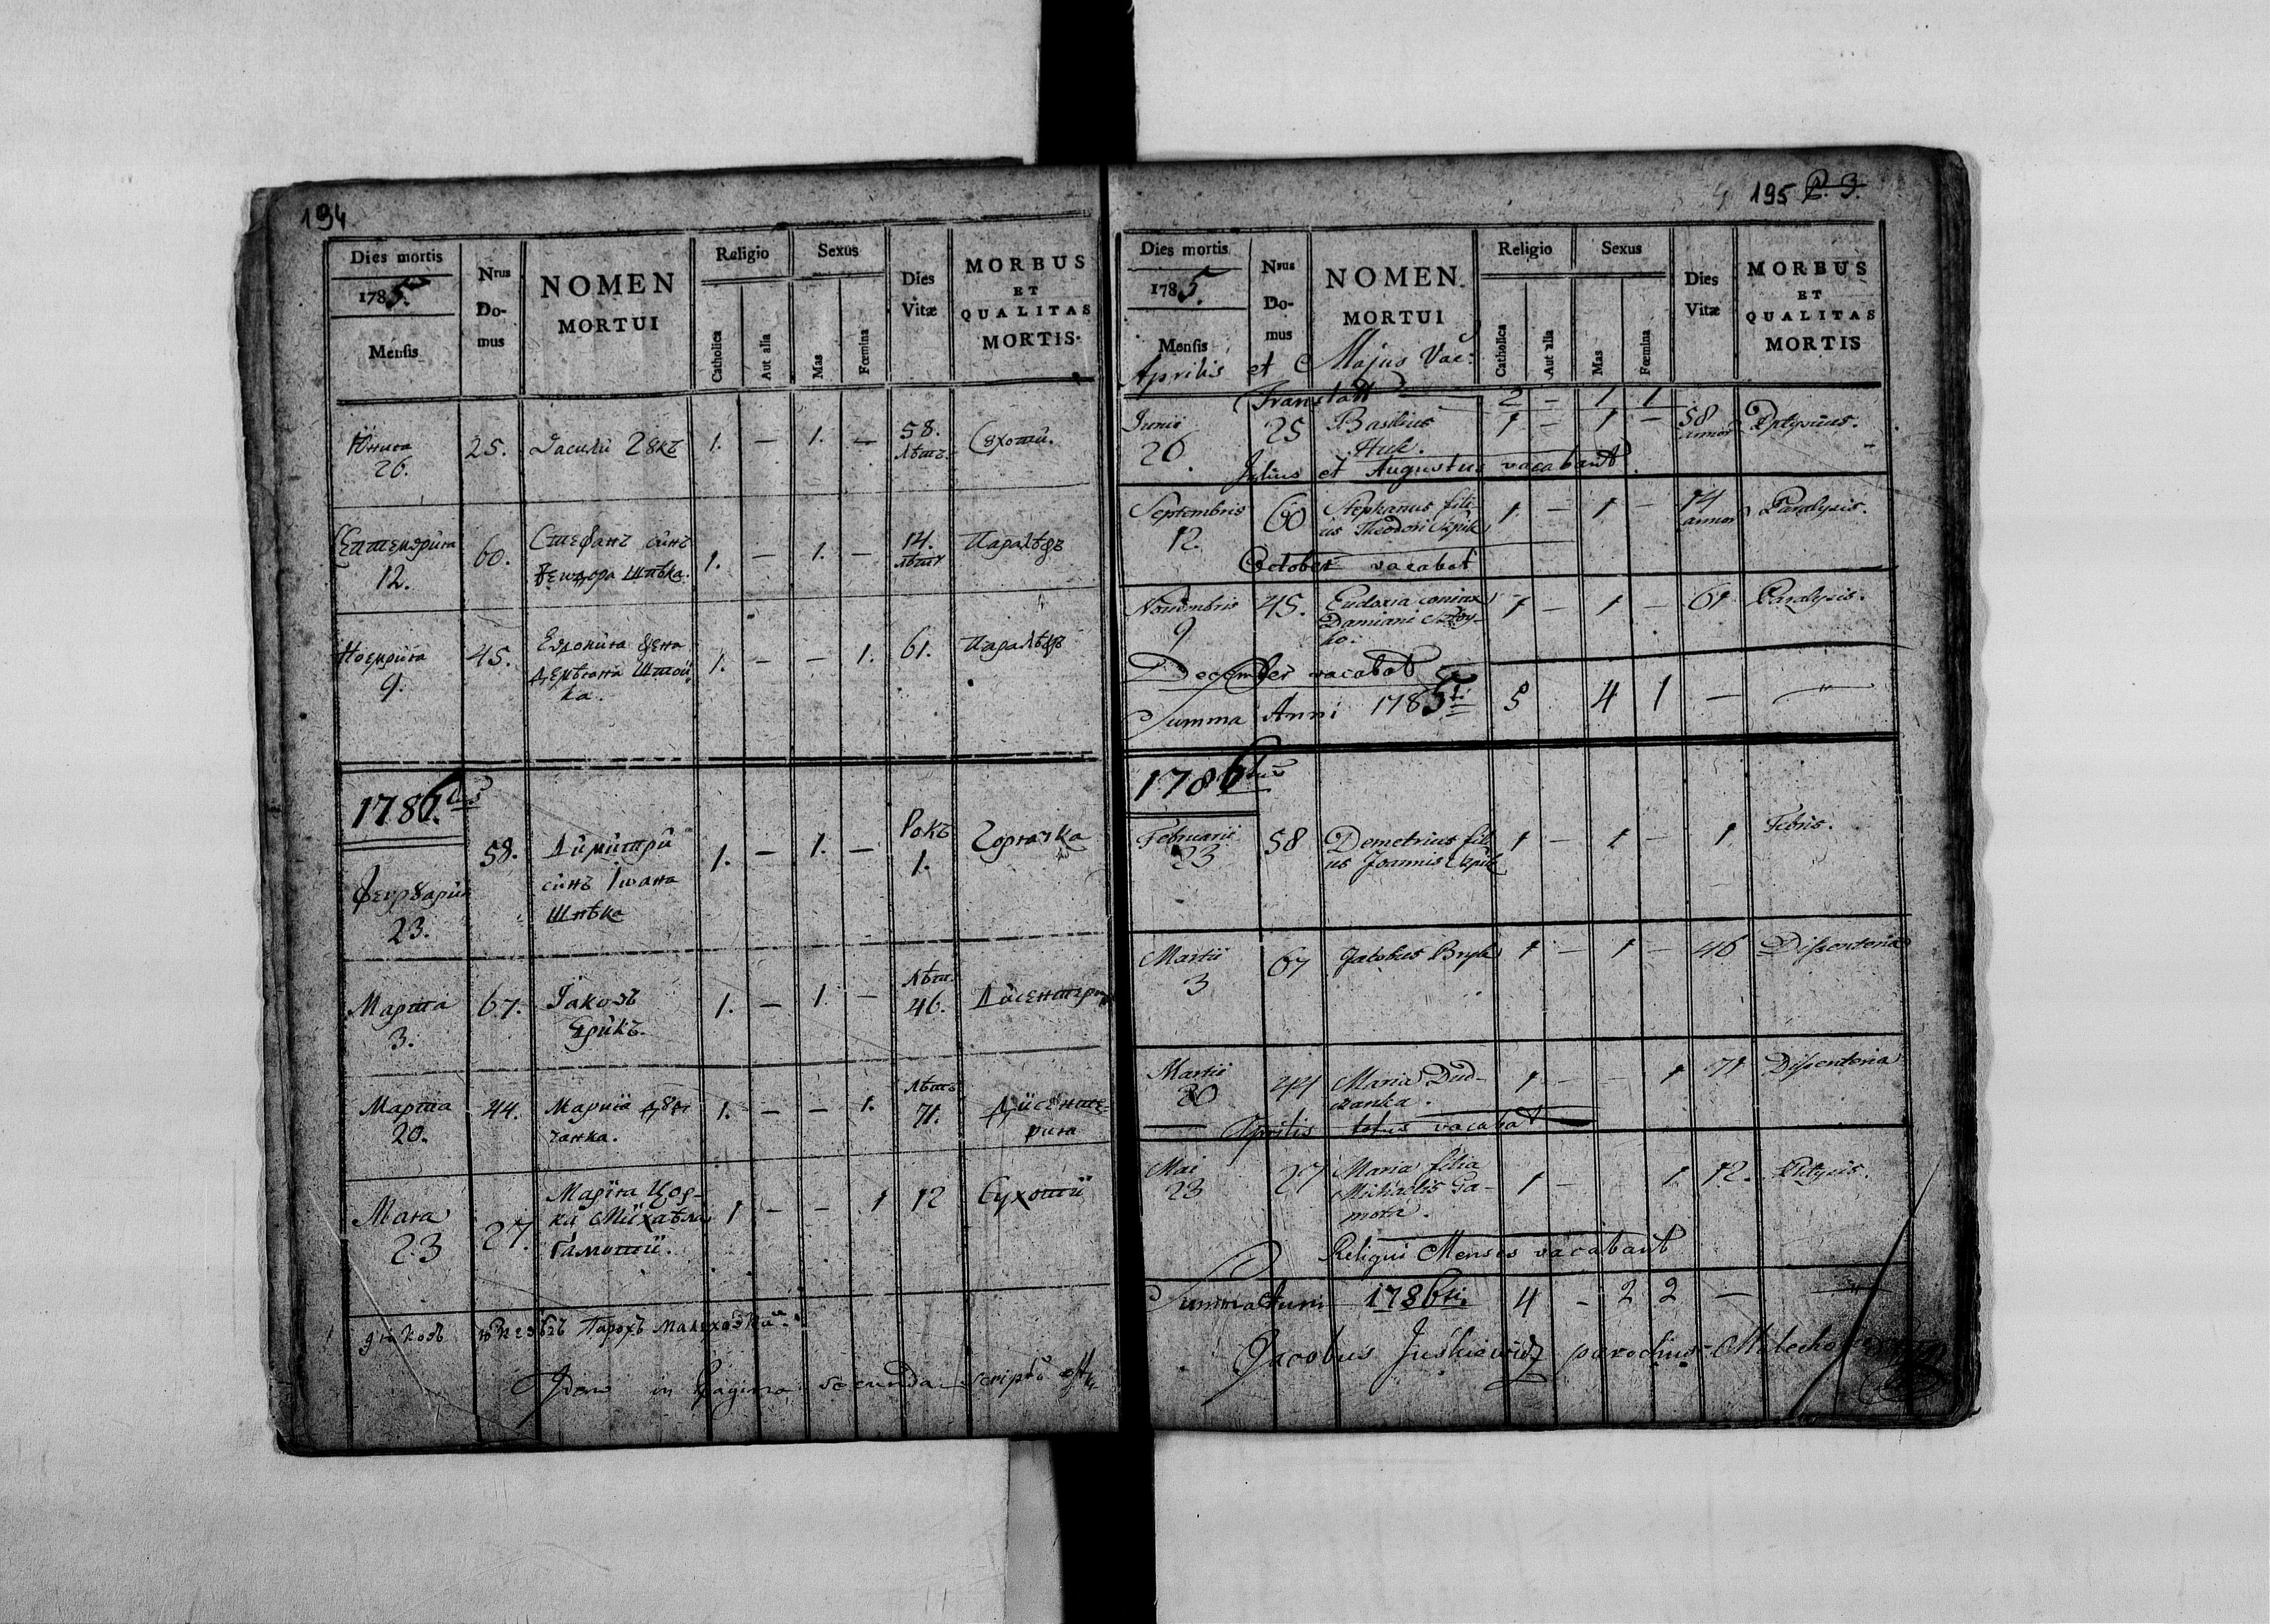 194
Dies mortis
1785.
Mensis
Nrus
Do-
mus
NOMEN
MORTUI
Religio
Catholica
Aut alia
Sexus
Mas
Fœmina
Dies
Vitæ
MORBUS
ET
QUALITAS
MORTIS.
26.
25.
1. — 1. —
58.
лѣтъ
Сухоти.
12.
60.
Стефанъ синъ
Ѳеѡдора Шпѣка.
1. — 1. —
14.
лѣтъ
9.
45.
Евдокиꙗ жена
Демѣѧна Штой
ка.
1. — — 1.
61.
1786tus
23.
58.
Димитри
синъ Іѡана
Шпѣка
1. — 1. —
Рокъ
1.
Горячка
Марта
3.
67.
Іаковъ
1. — 1. —
Лѣт.
46.
Марта
20.
44.
Мариꙗ
чанка.
1. — — 1.
Лѣтъ
71.
Дисенте-
риꙗ
Маꙗ
23
27.
Маріꙗ Цор-
ки Михаѣла
Гамоти.
1 — — 1
12
Сухоти
Парохъ
Idem in Pagina secunda scriptũ est
195 P. 3.
Dies mortis
1785.
Mensis
Nrus
Do-
mus
NOMEN
MORTUI
Religio
Catholica
Aut alia
Sexus
Mas
Fœmina
Dies
Vitæ
MORBUS
ET
QUALITAS
MORTIS
Aprilis et Majus Vac:
2 — 1 1
Junii
26.
25
Basilius
Huk.
1 — 1 —
58
annor
Julius et Augustus vacabant.
Septembris
12.
60
Stephanus fili-
us Theodori
1. — 1 —
14
annor
Paralysis.
October vacabat
Novembris
9
45.
Eudoxia coniux
Damiani
ko.
1 — 1 —
61
Paralysis.
December vacabat
Summa Anni 1785ti 5 4 1 —
1786tus
Februarii
23
58
Demetrius fili-
us Joannis
1 — 1 —
1
Febris.
Martii
3
67
Jacobus
1 — 1 —
46
Dissenteria
Martii
20
44
Maria Dud-
czanka.
1 — — 1
71
Dissenteria
Aprilis totus vacabat
Mai
23
27
Maria filia
Michaelis Ga-
mota.
1 — 1
12.
Ptisis.
Reliqui Menses vacabant
Summa Anni 1786ti. 4 — 2 2 —
Jacobus Juśkiewicz parochus